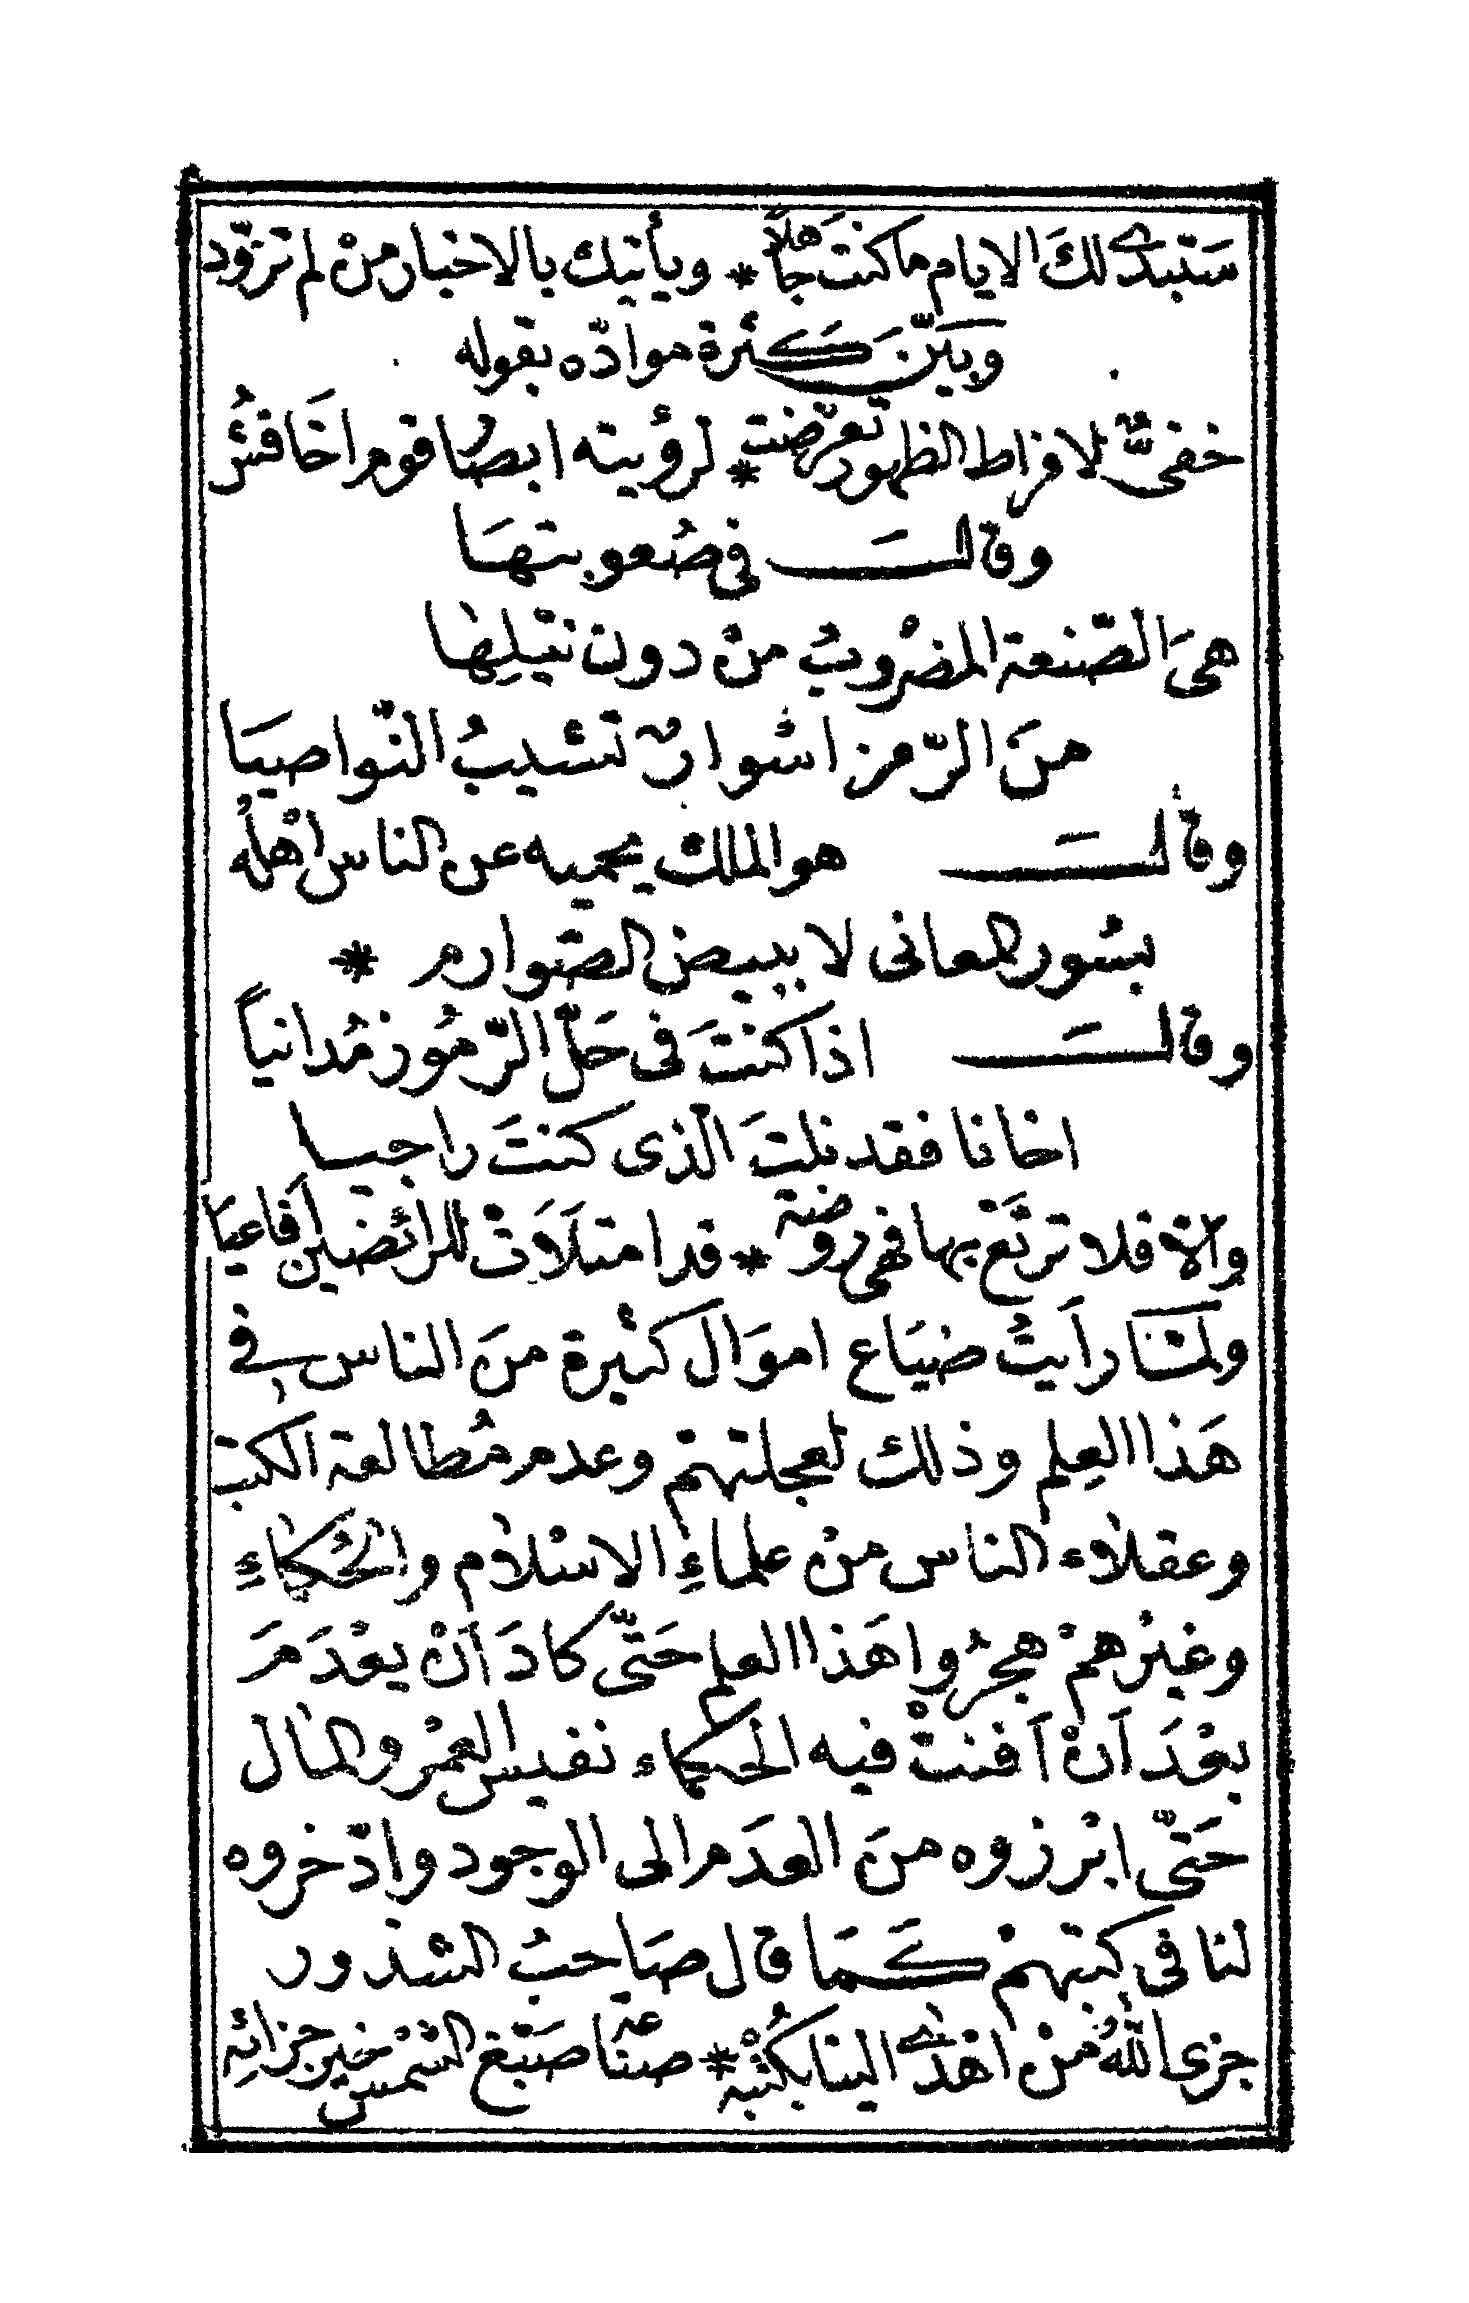 سَتبدى لكَ الايام ما كنتَ جاهلاً * ويأتيك بالاخبار منْ لم تزوّد
وبيّن كثرة موادّه بقوله
خفىٌّ لافراط الظهور تعرّضت * لرؤيته ابصار قوم اخَافشُ
وقالَ فى صُعوبتهَا
هىَ الصّنعة المضْروبُ منْ دون نَيْلِهٰا
منَ الرّمز اسْوارٌ تشيبُ النّواصيَا
وقالَ هو الملكْ يحميه عن الناس اهْلهُ
بسُور المعانى لا ببيض الصّوارم *
وقالَ اذا كنتَ فى حَلّ الرّمُوز مُدانياً
اخانا فقد نلتَ الذى كنتَ راجيا
والّا فلا ترتَعْ بها فهى روضة * قد امتلَاَتْ للرائضين اَفاعيَا
ولمّا راَيتُ ضيَاع اموَال كثيرة منَ الناس فى
هَذا العِلم وذلك لعجلتهمْ وعدم مُطالعة الكتب
وعقلاء الناس منْ علماءِ الاسْلام والحُكماءِ
وغيْرهمْ هجرُوا هَذا العلم حَتّى كادَ اَنْ يعْدَمَ
بعْدَ اَنْ اَفنتْ فيه الحكماء نفيس العمْر والمال
حَتّى ابْرزوه منَ العدَم الى الوجود وادّخروه
لنا فى كتبهمْ كمَا قال صَاحبُ الشذور
جزى اللهُ منْ اهْدَى الينا بكُتْبه * صنَاعة صَبْغ الشمْس خير جزائهِ